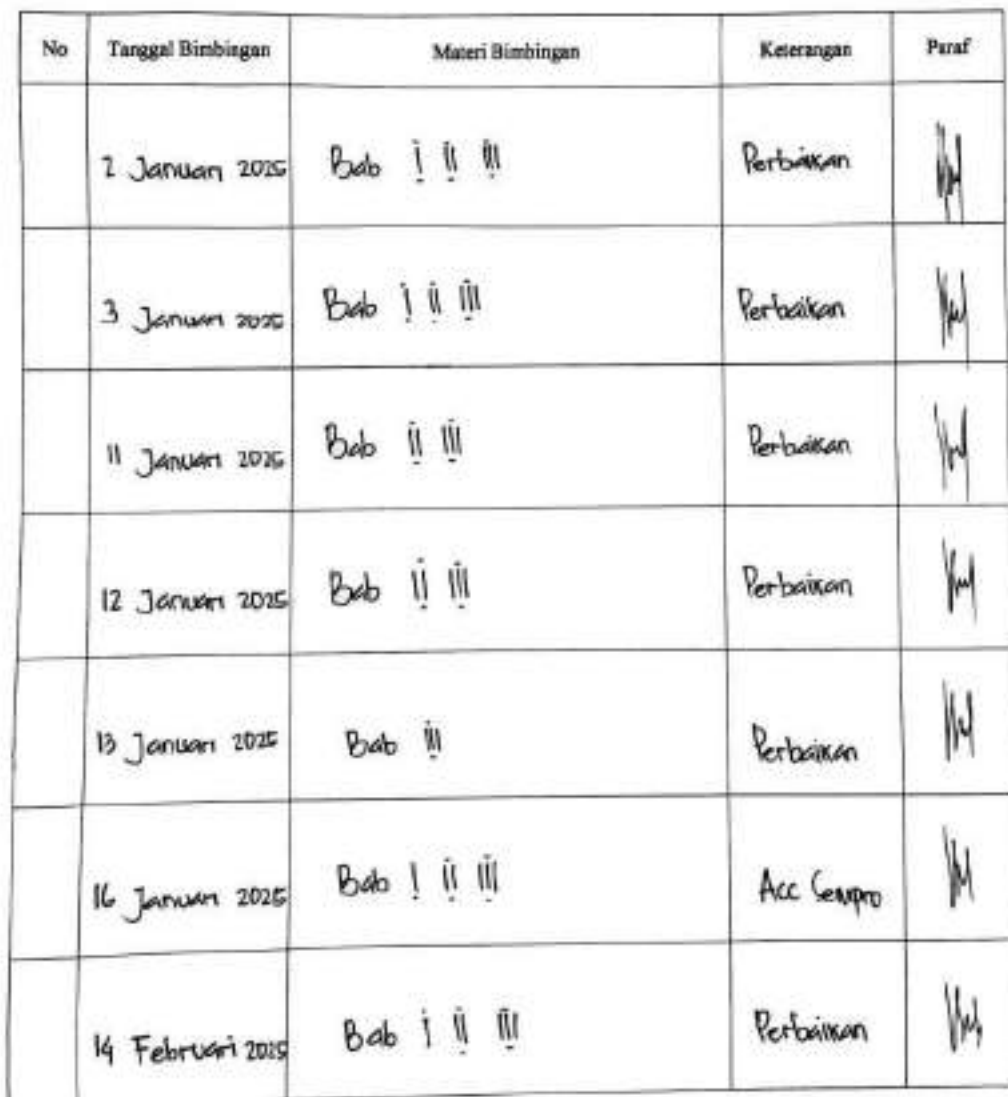 No Tanggal Bimbingan Materi Bimbingan Keterangan Paraf
2 Januari 2025 Bab I II III Perbaikan
3 Januari 2025 Bab I II III Perbaikan
11 Januari 2025 Bab II III Perbaikan
12 Januari 2025 Bab II III Perbaikan
13 Januari 2025 Bab III Perbaikan
16 Januari 2025 Bab I II III Acc Sempro
14 Februari 2025 Bab I II III Perbaikan